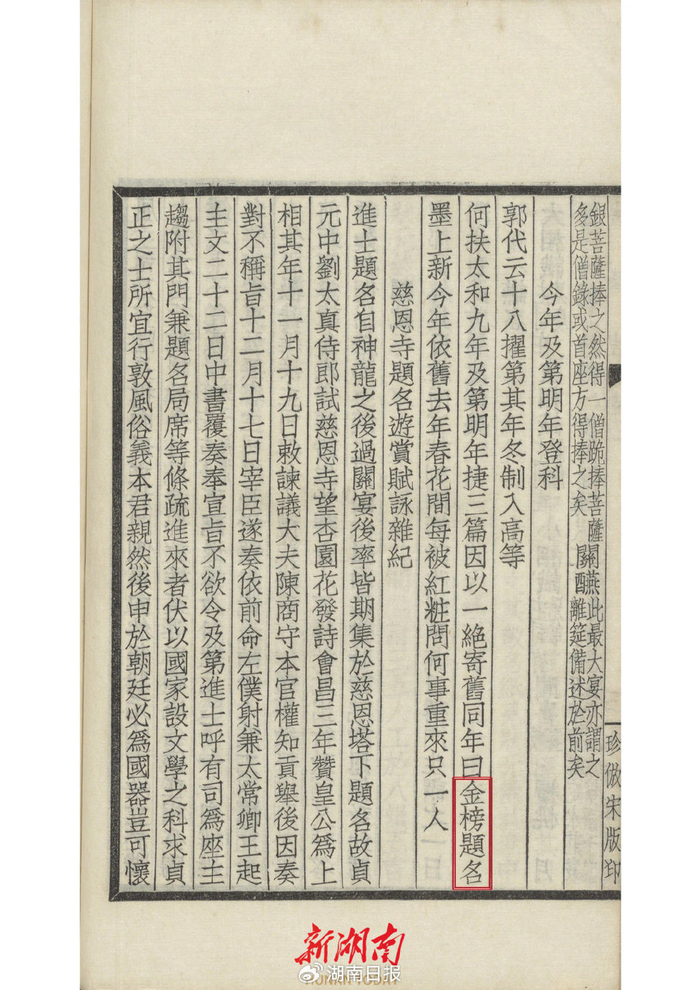 珍倣宋版印
銀菩薩捧之然得一僧跪捧菩薩關燕此最大宴亦謂之
多是僧錄或首座方得捧之矣 關酺離筵備述於前矣
今年及第明年登科
郭代云十八擢第其年冬制入高等
何扶太和九年及第明年捷三篇因以一絶寄舊同年曰金榜題名
墨上新今年依舊去年春花間每被紅粧問何事重來只一人
慈恩寺題名遊賞賦詠雜紀
進士題名自神龍之後過關宴後率皆期集於慈恩塔下題名故貞
元中劉太真侍郎試慈恩寺望杏園花發詩會昌三年贊皇公為上
相其年十一月十九日敕諫議大夫陳商守本官權知貢舉後因奏
對不稱旨十二月十七日宰臣遂奏依前命左僕射兼太常卿王起
主文二十二日中書覆奏奉宣旨不欲令及第進士呼有司為座主
趨附其門兼題名局席等條疏進來者伏以國家設文學之科求貞
正之士所宜行敦風俗義本君親然後申於朝廷必為國器豈可懷
新湖南
HUNAN TODAY
湖南日报